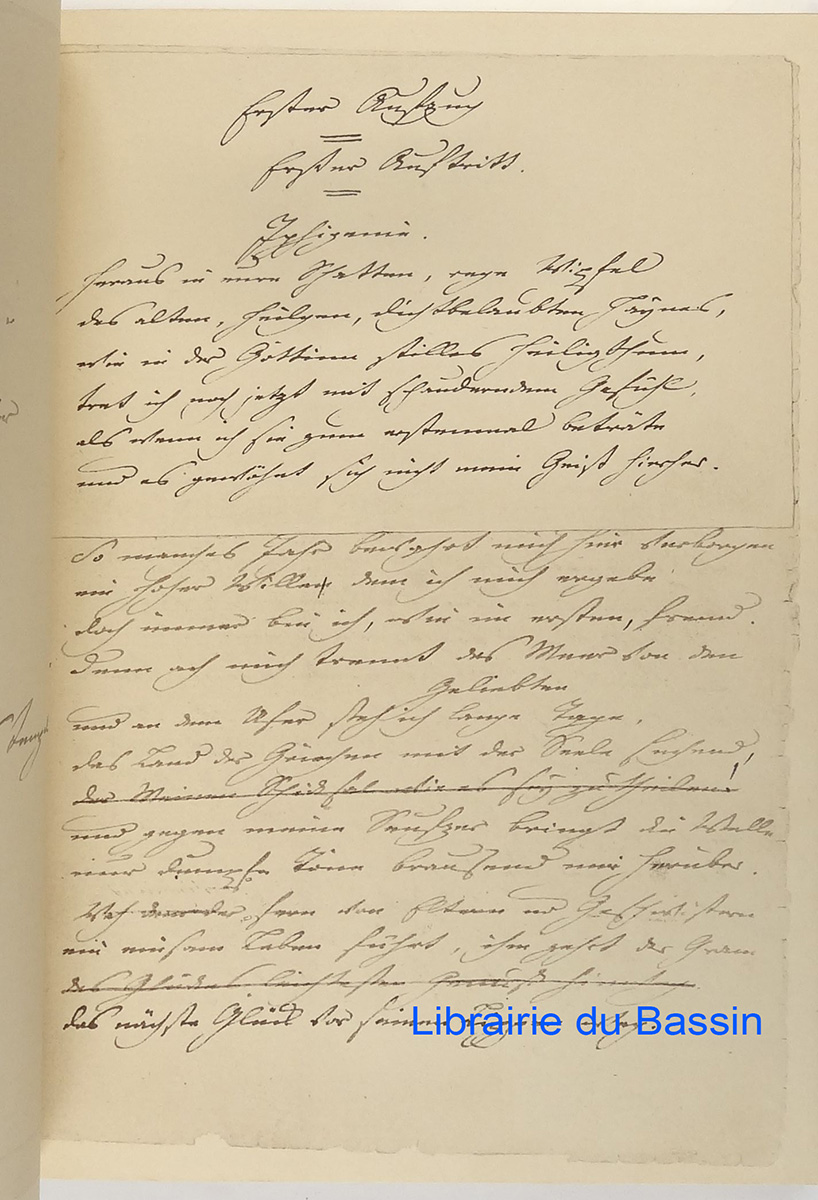 Erster Aufzug
Erster Auftritt.
Iphigenie.
Heraus in eure Schatten, rege Wipfel
des alten, heilgen, dichtbelaubten Haynes,
wie in der Göttinn stilles Heiligthum,
tret ich noch jetzt mit schauderndem Gefühl,
als wenn ich sie zum erstenmal beträte
und es gewöhnt sich nicht mein Geist hierher.
So manches Jahr bewahrt mich hier verborgen
ein hoher Wille dem ich mich ergebe
doch immer bin ich, wie im ersten, fremd.
denn ach mich trennt das Meer von den
Geliebten
und an dem Ufer steh ich lange Tage,
das Land der Griechen mit der Seele suchend,
der Meinen Schicksal wie es sey zu theilen!
und gegen meine Seufzer bringt die Welle
nur dumpfe Töne brausend mir herüber.
Weh dem der fern von Eltern und Geschwistern
ein einsam Leben führt, ihm zehrt der Gram
des Glückes liebsten Genuß hinweg
das nächste Glück vor seinen Lippen weg.
Librairie du Bassin
Temp